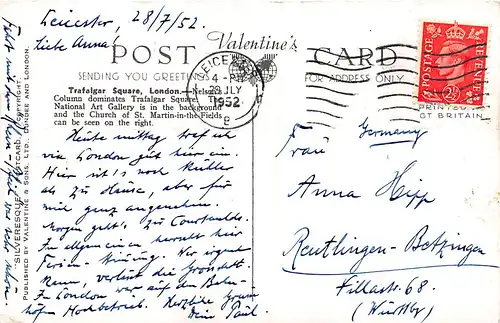 Leicester, 28/7/52.
Liebe Anna,
POST Valentine's CARD
SENDING YOU GREETINGS
FOR ADDRESS ONLY
Trafalgar Square, London.—Nelson's
Column dominates Trafalgar Square. The
National Art Gallery is in the background
and the Church of St. Martin-in-the-Fields
can be seen on the right.
Heute mittag traf ich
via London gut hier ein.
Hier ist's noch kühler
als zu Hause, aber für
mich ganz angenehm.
Morgen geht's zu Courtaulds.
Im allgemeinen herrscht hier
Ferien-Stimmung. Wer irgend
kann, verlässt die Grosstadt.
In London war auf den Bahn-
höfen Hochbetrieb. Herzliche Grüsse
Dein Paul.
Fahrt mit dem Rhein-Pfeil war sehr schön.
"SILVERESQUE" POSTCARD COPYRIGHT.
PUBLISHED BY VALENTINE & SONS, LTD., DUNDEE AND LONDON.
LEICESTER
4-PM
28 JLY
1952
POSTAGE REVENUE
2½
PRINTED
GT BRITAIN
Germany
Frau
Anna Hipp
Reutlingen-Betzingen
68.
(Württbg)